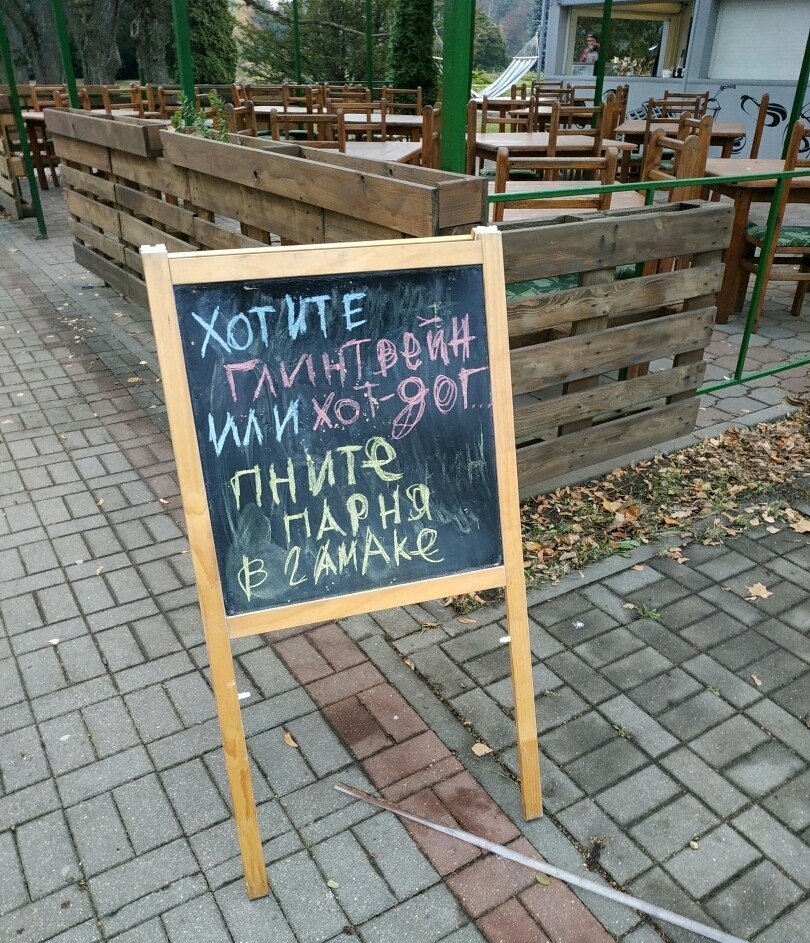 ХОТИТЕ
ГЛИНТВЕЙН
ИЛИ ХОТ-ДОГ...
ПНИТЕ
ПАРНЯ
В ГАМАКЕ